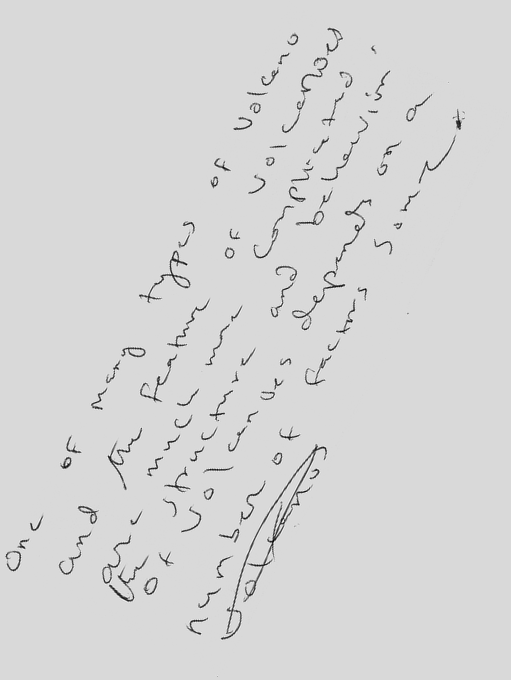 One of many types of volcano
and the feature of volcanoes
are much more complicated
the structure and behavior
of volcanoes depends on a
number of factors some